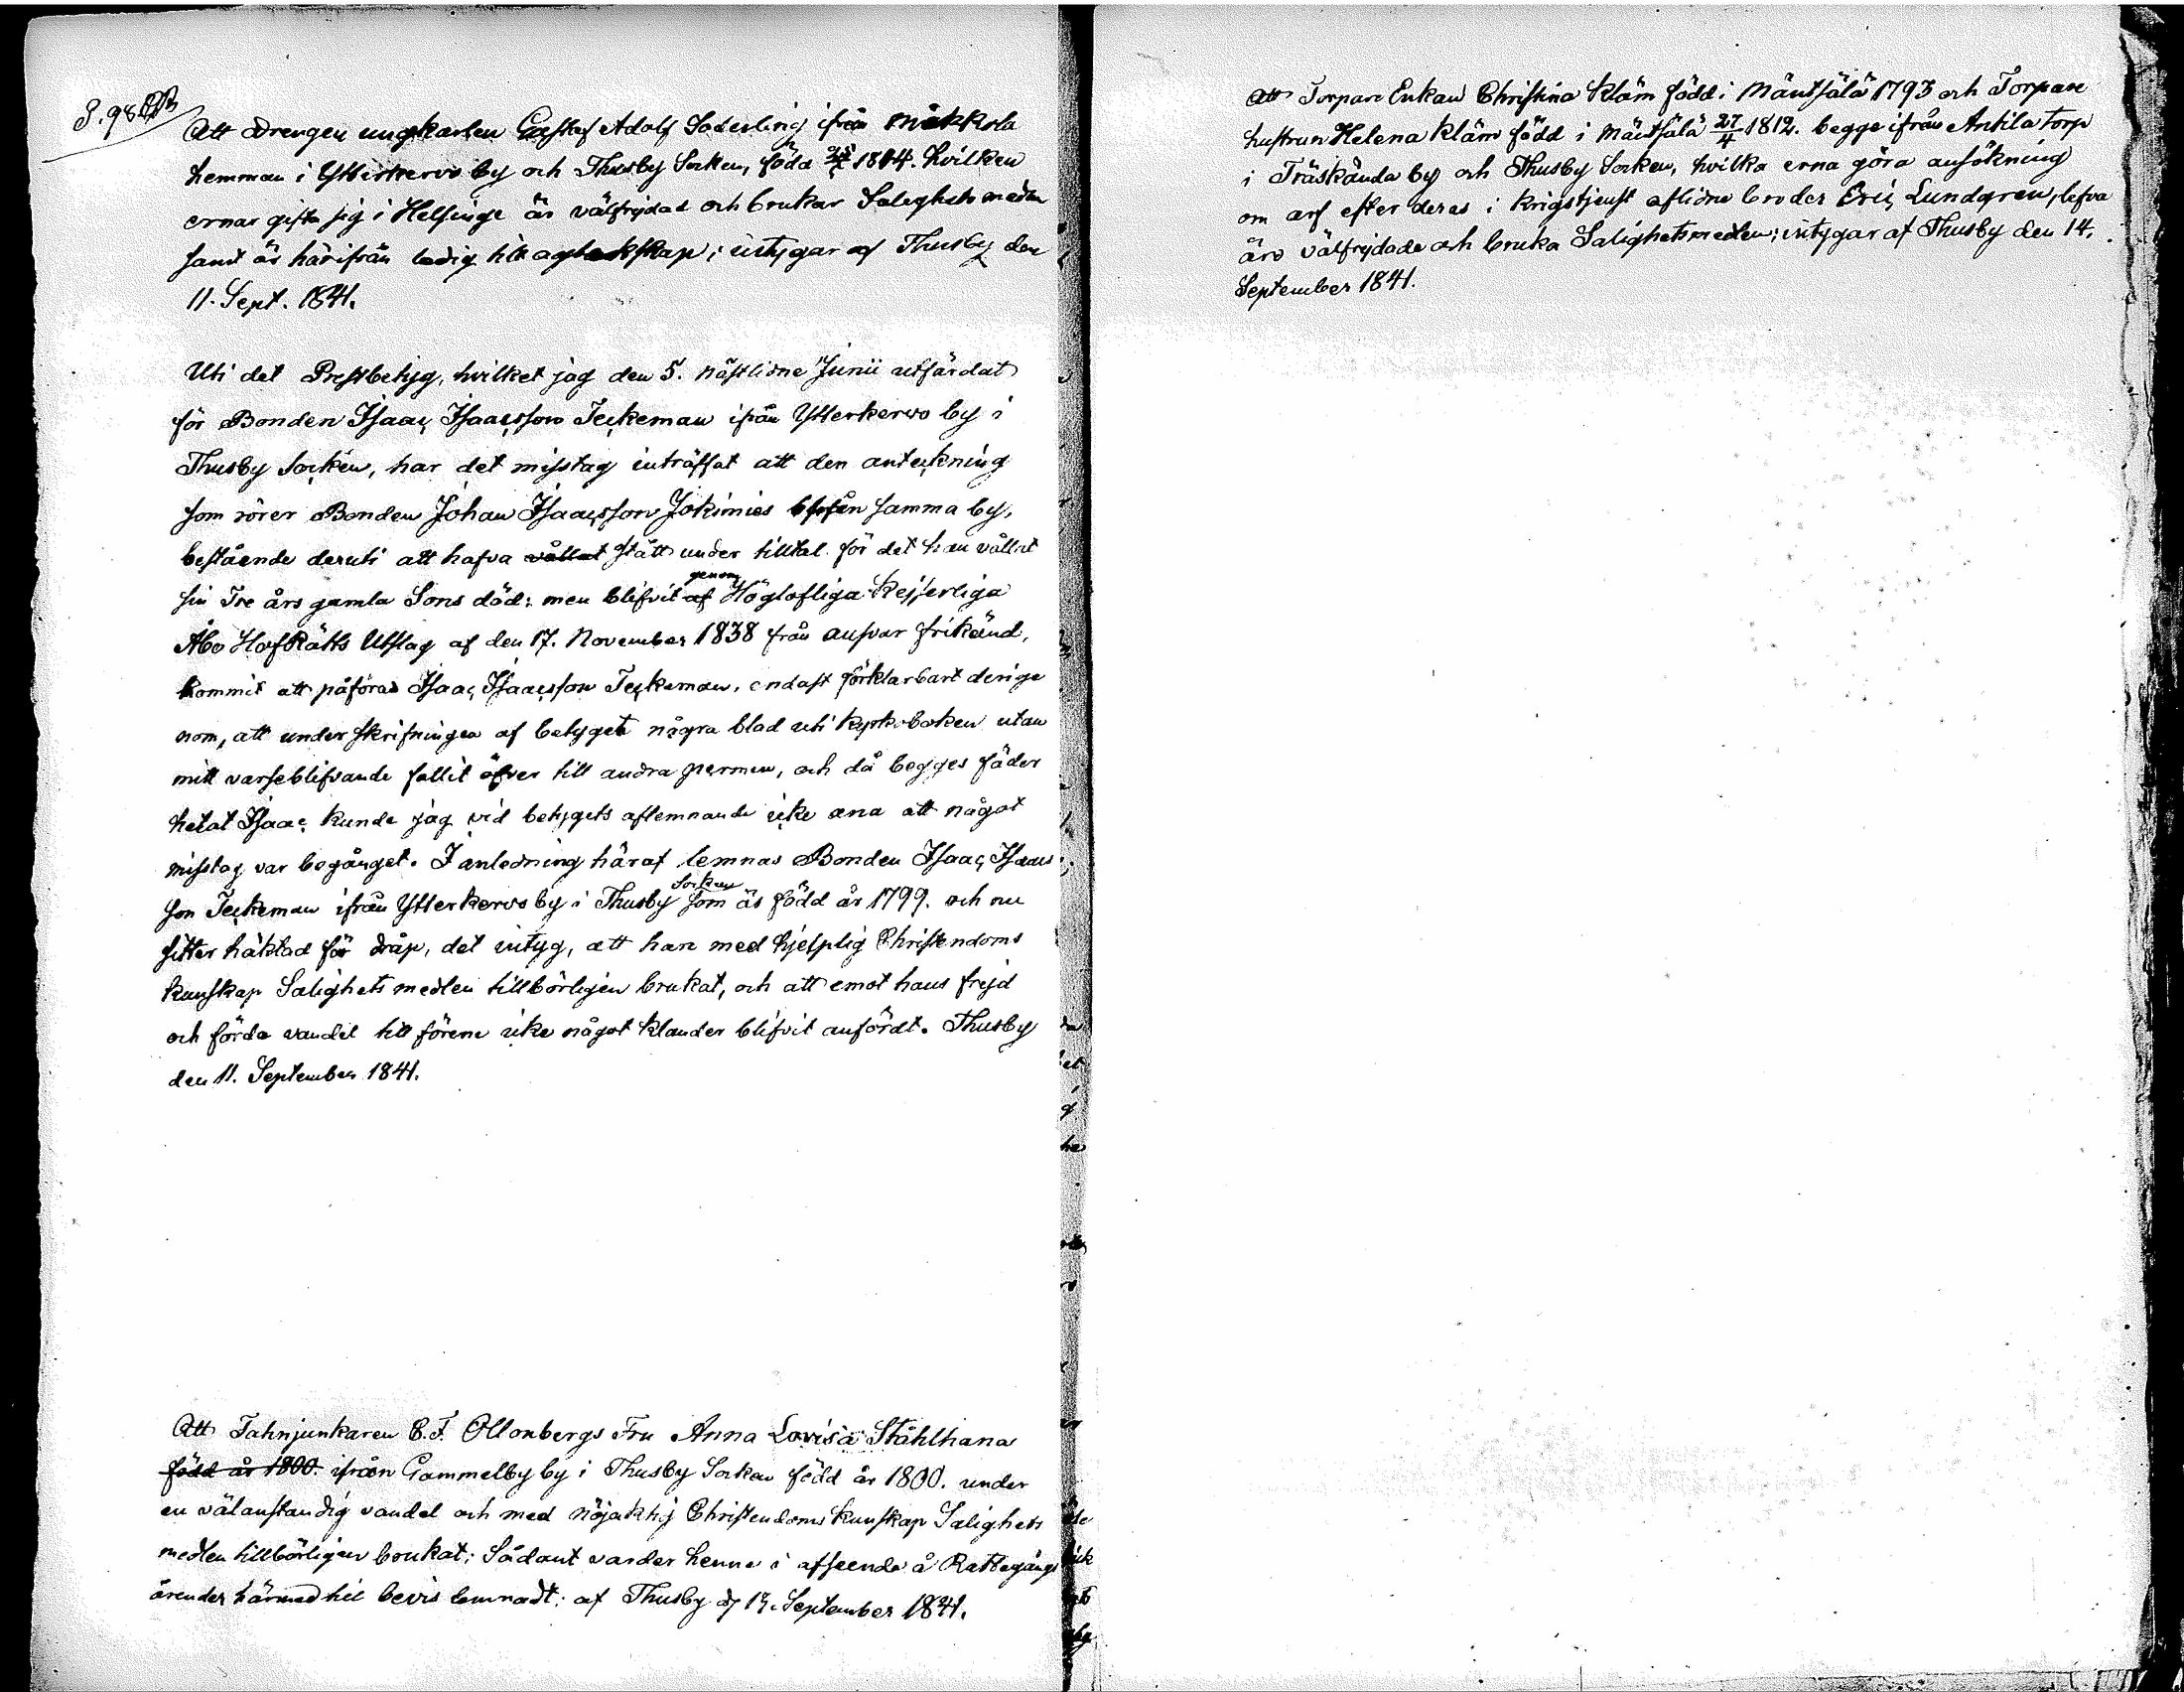 S. 98.
Att Drengen ungkarlen Gustaf Adolf Söderling ifrån Mäkkola
hemman i Ytterkervo by och Thusby Socken, född 1814. hvilken
ernar gifta sig i Helsinge är välfrejdad och brukar Salighets medlen
samt är härifrån ledig till agtenskap; intygar af Thusby den
11. Sept. 1841.
Uti det Prestbetyg, hvilket jag den 5. nästlidne Junii utfärdat
för Bonden Isaac Isaacsson Teckeman ifrån Ytterkervo by i
Thusby Socken, har det misstag inträffat att den anteckning
som rörer Bonden Johan Isaacsson Jokimies ifrån samma by,
bestående deruti att hafva vållat stått under tilltal för det han vållat
sin Tre års gamla Sons död: men blifvit af genom Höglofliga Kejserliga
Åbo HofRätts Utslag af den 17. November 1838 från ansvar frikänd,
kommit att påföras Isaac Isaacsson Teckeman, endast förklarbart derige
nom, att under skrifningen af betyget några blad uti kyrkoboken utan
mitt varseblifvande fallit öfver till andra permen, och då begges fäder
hetat Isaac kunde jag vid betygets aflemnande icke ana att något
misstag var begånget. I anledning häraf lemnas Bonden Isaac Isaacs
son Teckeman ifrån Ytterkervo by i Thusby Socken som är född år 1799. och nu
sitter häktad för dråp, det intyg, att han med hjelplig Christendoms
kunskap Salighets medlen tillbörligen brukat, och att emot hans frejd
och förda vandel till förene icke något klander blifvit anfördt. Thusby
den 11. September 1841.
Att Fahnjunkaren C. F. Ollonbergs Fru Anna Lovisa Stålhana
född år 1800. ifrån Gammelby by i Thusby Socken född år 1800. under
en välanständig vandel och med nöjaktig Christendoms kunskap Salighets
medlen tillbörligen brukat; Sådant varder henne i afseende å Rättegångs
ärender härmed till bevis lemnadt; af Thusby d 13. September 1841.
Att Torpare Enkan Christina Kläm född i Mäntsälä 1793 och Torpare
hustrun Helena Kläm född i Mäntsälä 27/4 1812. begge ifrån Antila torp
i Träskända by och Thusby Socken, hvilka erna göra ansökning
om arf efter deras i krigstjenst aflidne broder Eric Lundgren, lefva
äro välfrejdade och bruka Salighetsmedlen; intygar af Thusby den 14.
September 1841.